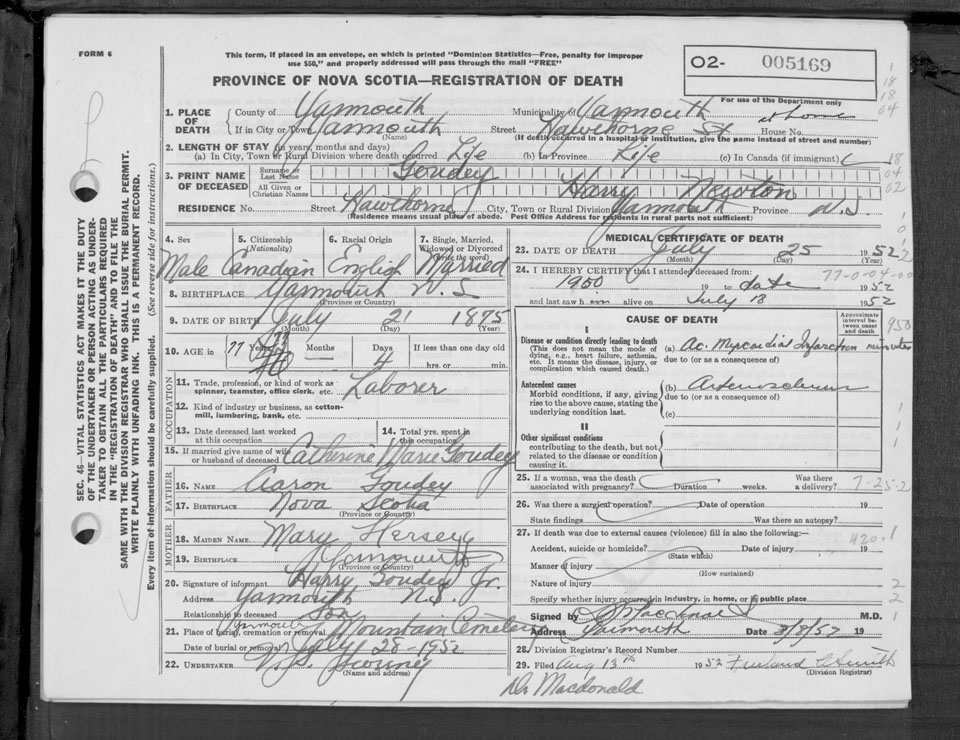 FORM 6
This form, if placed in an envelope, on which is printed "Dominion Statistics—Free, penalty for improper
use $50," and properly addressed will pass through the mail "FREE"
PROVINCE OF NOVA SCOTIA—REGISTRATION OF DEATH
O2- 005169
For use of the Department only
SEC. 46—VITAL STATISTICS ACT MAKES IT THE DUTY
OF THE UNDERTAKER OR PERSON ACTING AS UNDER-
TAKER TO OBTAIN ALL THE PARTICULARS REQUIRED
IN THE "REGISTRATION OF DEATH" AND TO FILE THE
SAME WITH THE DIVISION REGISTRAR WHO SHALL ISSUE THE BURIAL PERMIT.
WRITE PLAINLY WITH UNFADING INK. THIS IS A PERMANENT RECORD.
Every item of information should be carefully supplied. (See reverse side for instructions.)
1. PLACE OF DEATH County of Yarmouth Municipality of Yarmouth
If in City or Town Yarmouth (Name) Street Hawthorne St House No. at home
(If death occurred in a hospital or institution, give the name instead of street and number)
2. LENGTH OF STAY (in years, months and days)
(a) In City, Town or Rural Division where death occurred Life (b) In Province Life (c) In Canada (if immigrant)
3. PRINT NAME OF DECEASED Surname or Last Name Goudey
All Given or Christian Names Harry Newton
RESIDENCE No. Street Hawthorne City, Town or Rural Division Yarmouth Province N.S
(Residence means usual place of abode. Post Office Address for residents in rural parts not sufficient)
4. Sex 5. Citizenship (Nationality) 6. Racial Origin 7. Single, Married, Widowed or Divorced (Write the word)
Male Canadian English Married
8. BIRTHPLACE Yarmouth N.S
(Province or Country)
9. DATE OF BIRTH July 21 1875
(Month) (Day) (Year)
10. AGE in 77 Years Months Days 4 If less than one day old
hrs. or min.
OCCUPATION
11. Trade, profession, or kind of work as spinner, teamster, office clerk, etc. Laborer
12. Kind of industry or business, as cotton-mill, lumbering, bank, etc.
13. Date deceased last worked at this occupation 14. Total yrs. spent in this occupation
15. If married give name of wife or husband of deceased Catherine Marie Goudey
FATHER
16. NAME Aaron Goudey
17. BIRTHPLACE Nova Scotia
(Province or Country)
MOTHER
18. MAIDEN NAME Mary Hersey
19. BIRTHPLACE Yarmouth
(Province or Country)
20. Signature of informant Harry Goudey Jr.
Address Yarmouth N.S.
Relationship to deceased Son
21. Place of burial, cremation or removal Yarmouth Mountain Cemetery
Date of burial or removal July 28-1952
22. UNDERTAKER V.S. Sweeney
(Name and address)
MEDICAL CERTIFICATE OF DEATH
23. DATE OF DEATH July 25 1952
(Month) (Day) (Year)
24. I HEREBY CERTIFY that I attended deceased from:
1950 19 to date 1952
and last saw him alive on July 18 1952
77-0-04-00
CAUSE OF DEATH
Approximate interval between onset and death
I
Disease or condition directly leading to death
(This does not mean the mode of dying, e.g., heart failure, asthenia, etc. It means the disease, injury, or complication which caused death.)
(a) Ac. Myocardial Infarction minutes
due to (or as a consequence of)
Antecedent causes
Morbid conditions, if any, giving rise to the above cause, stating the underlying condition last.
(b) Arteriosclerosis
due to (or as a consequence of)
(c)
II
Other significant conditions
contributing to the death, but not related to the disease or condition causing it.
25. If a woman, was the death associated with pregnancy? Duration weeks. Was there a delivery?
7-25-2
26. Was there a surgical operation? Date of operation 19
State findings Was there an autopsy?
27. If death was due to external causes (violence) fill in also the following:—
420.1
Accident, suicide or homicide? Date of injury 19
(State which)
Manner of injury
(How sustained)
Nature of injury
Specify whether injury occurred in industry, in home, or in public place
Signed by M.D.
Address Yarmouth Date 3/8/52 19
28. Division Registrar's Record Number
29. Filed Aug 13th 1952
(Division Registrar)
Dr Macdonald